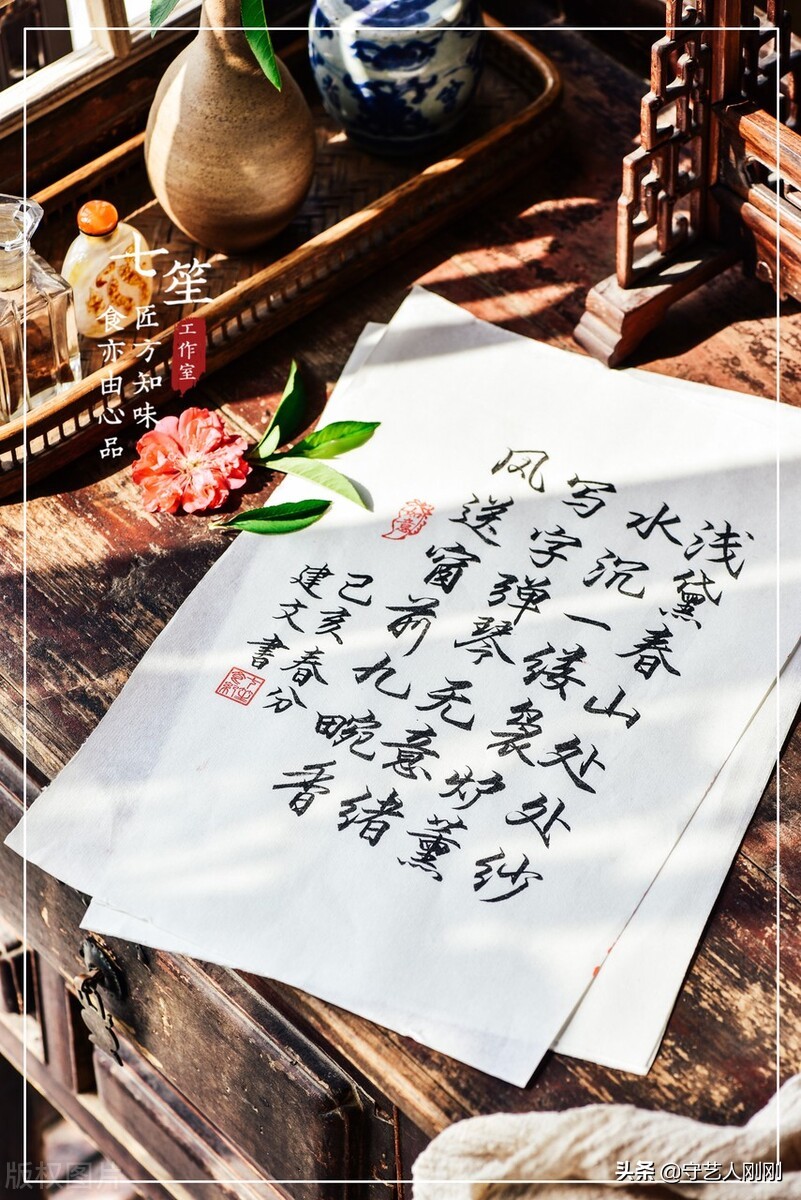 七笙
工作室
匠方知味
食亦由心品
浅黛春山处处纱
水沉一缕袅炉薰
写字弹琴无意绪
风送窗前九畹香
己亥春分
建文書
版权图片
头条 @守艺人刚刚